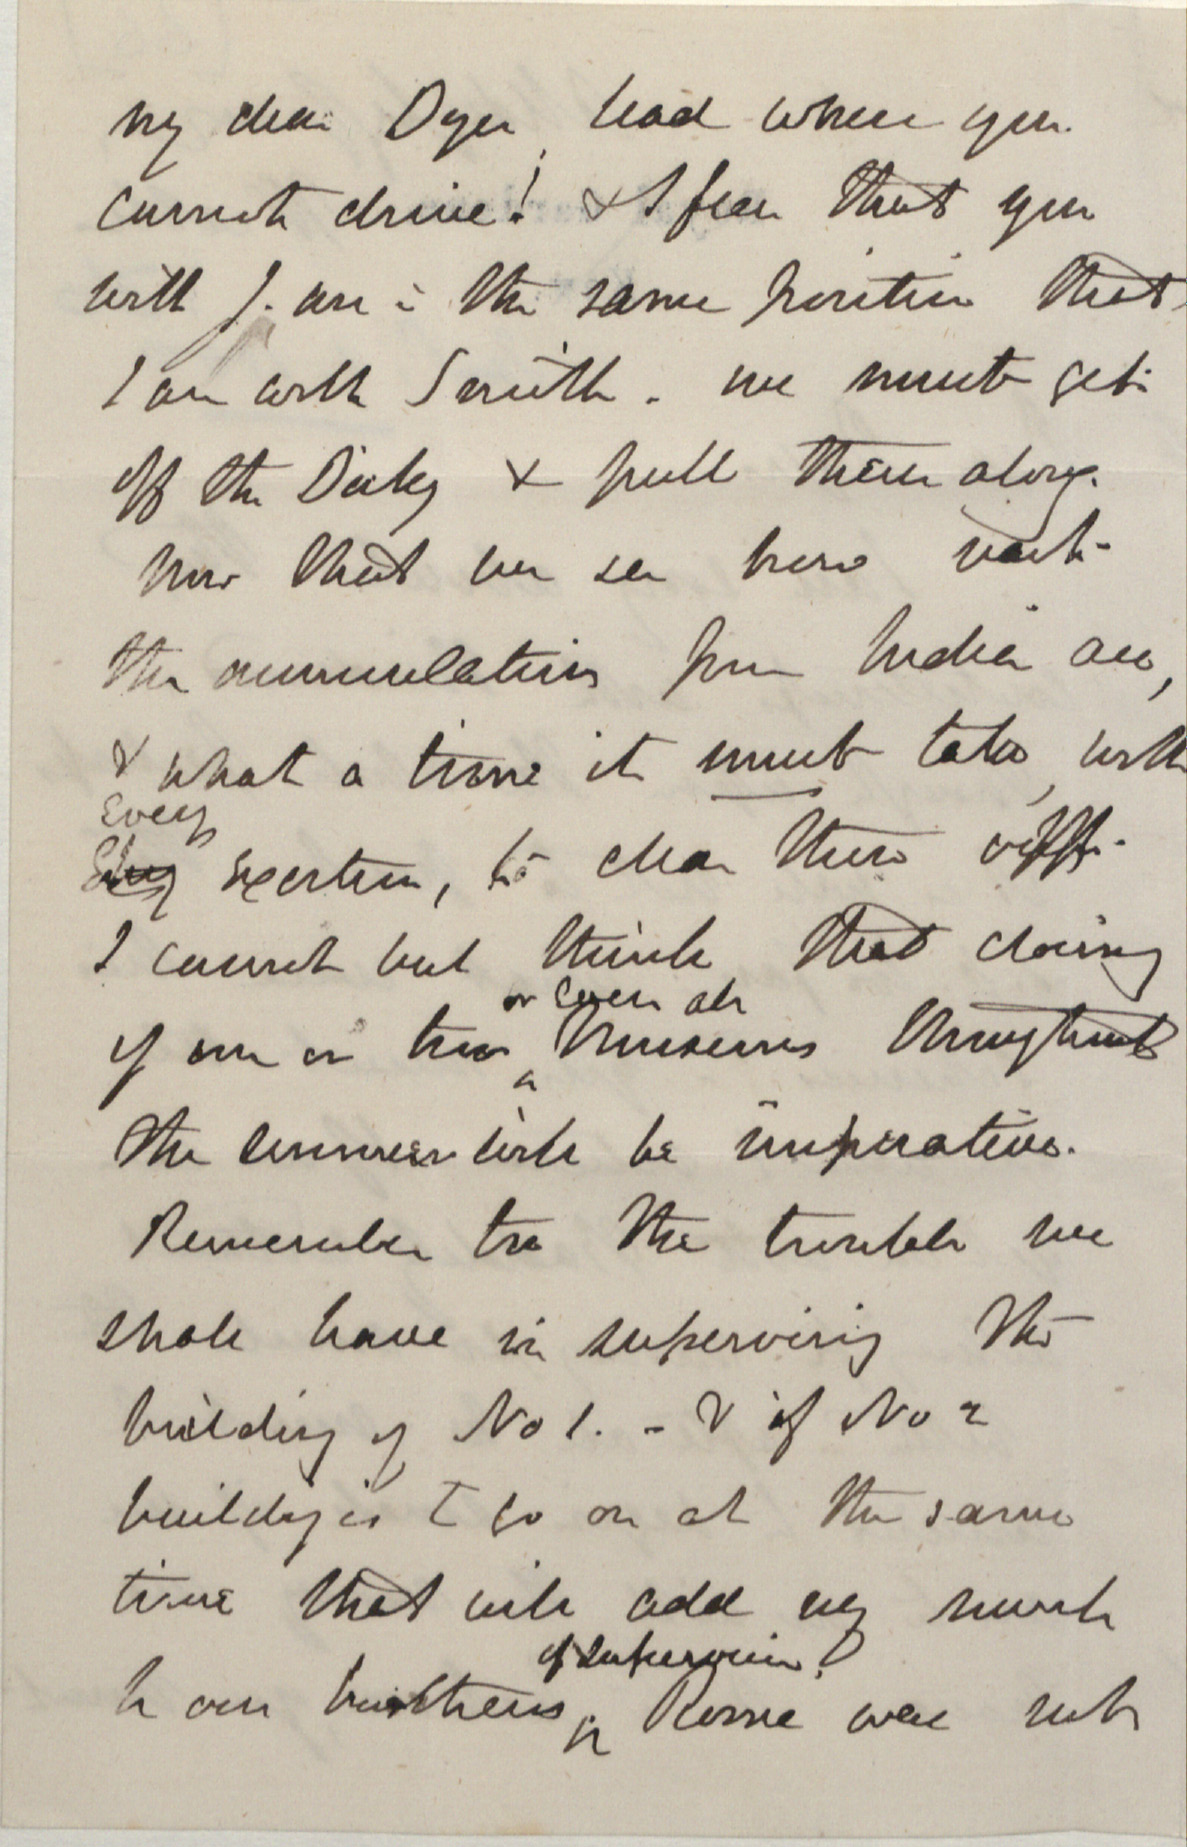 my dear Dyer, lead where you
cannot drive! & I fear that you
with J. are in the same position that
I am with Smith. we must get
off the Dicky & pull them along.
now that we see how vast
the accumulations from India are,
& what a time it must take, with
Every
exertion, to clear them off.
I cannot but think that closing
or even all
of one or two Museums throughout
the summer will be imperative.
Remember too the trouble we
shall have in supervising the
building of No 1. - & if No 2
building is to go on at the same
time that will add very much
of supervision!
to our burthens, Rome was not